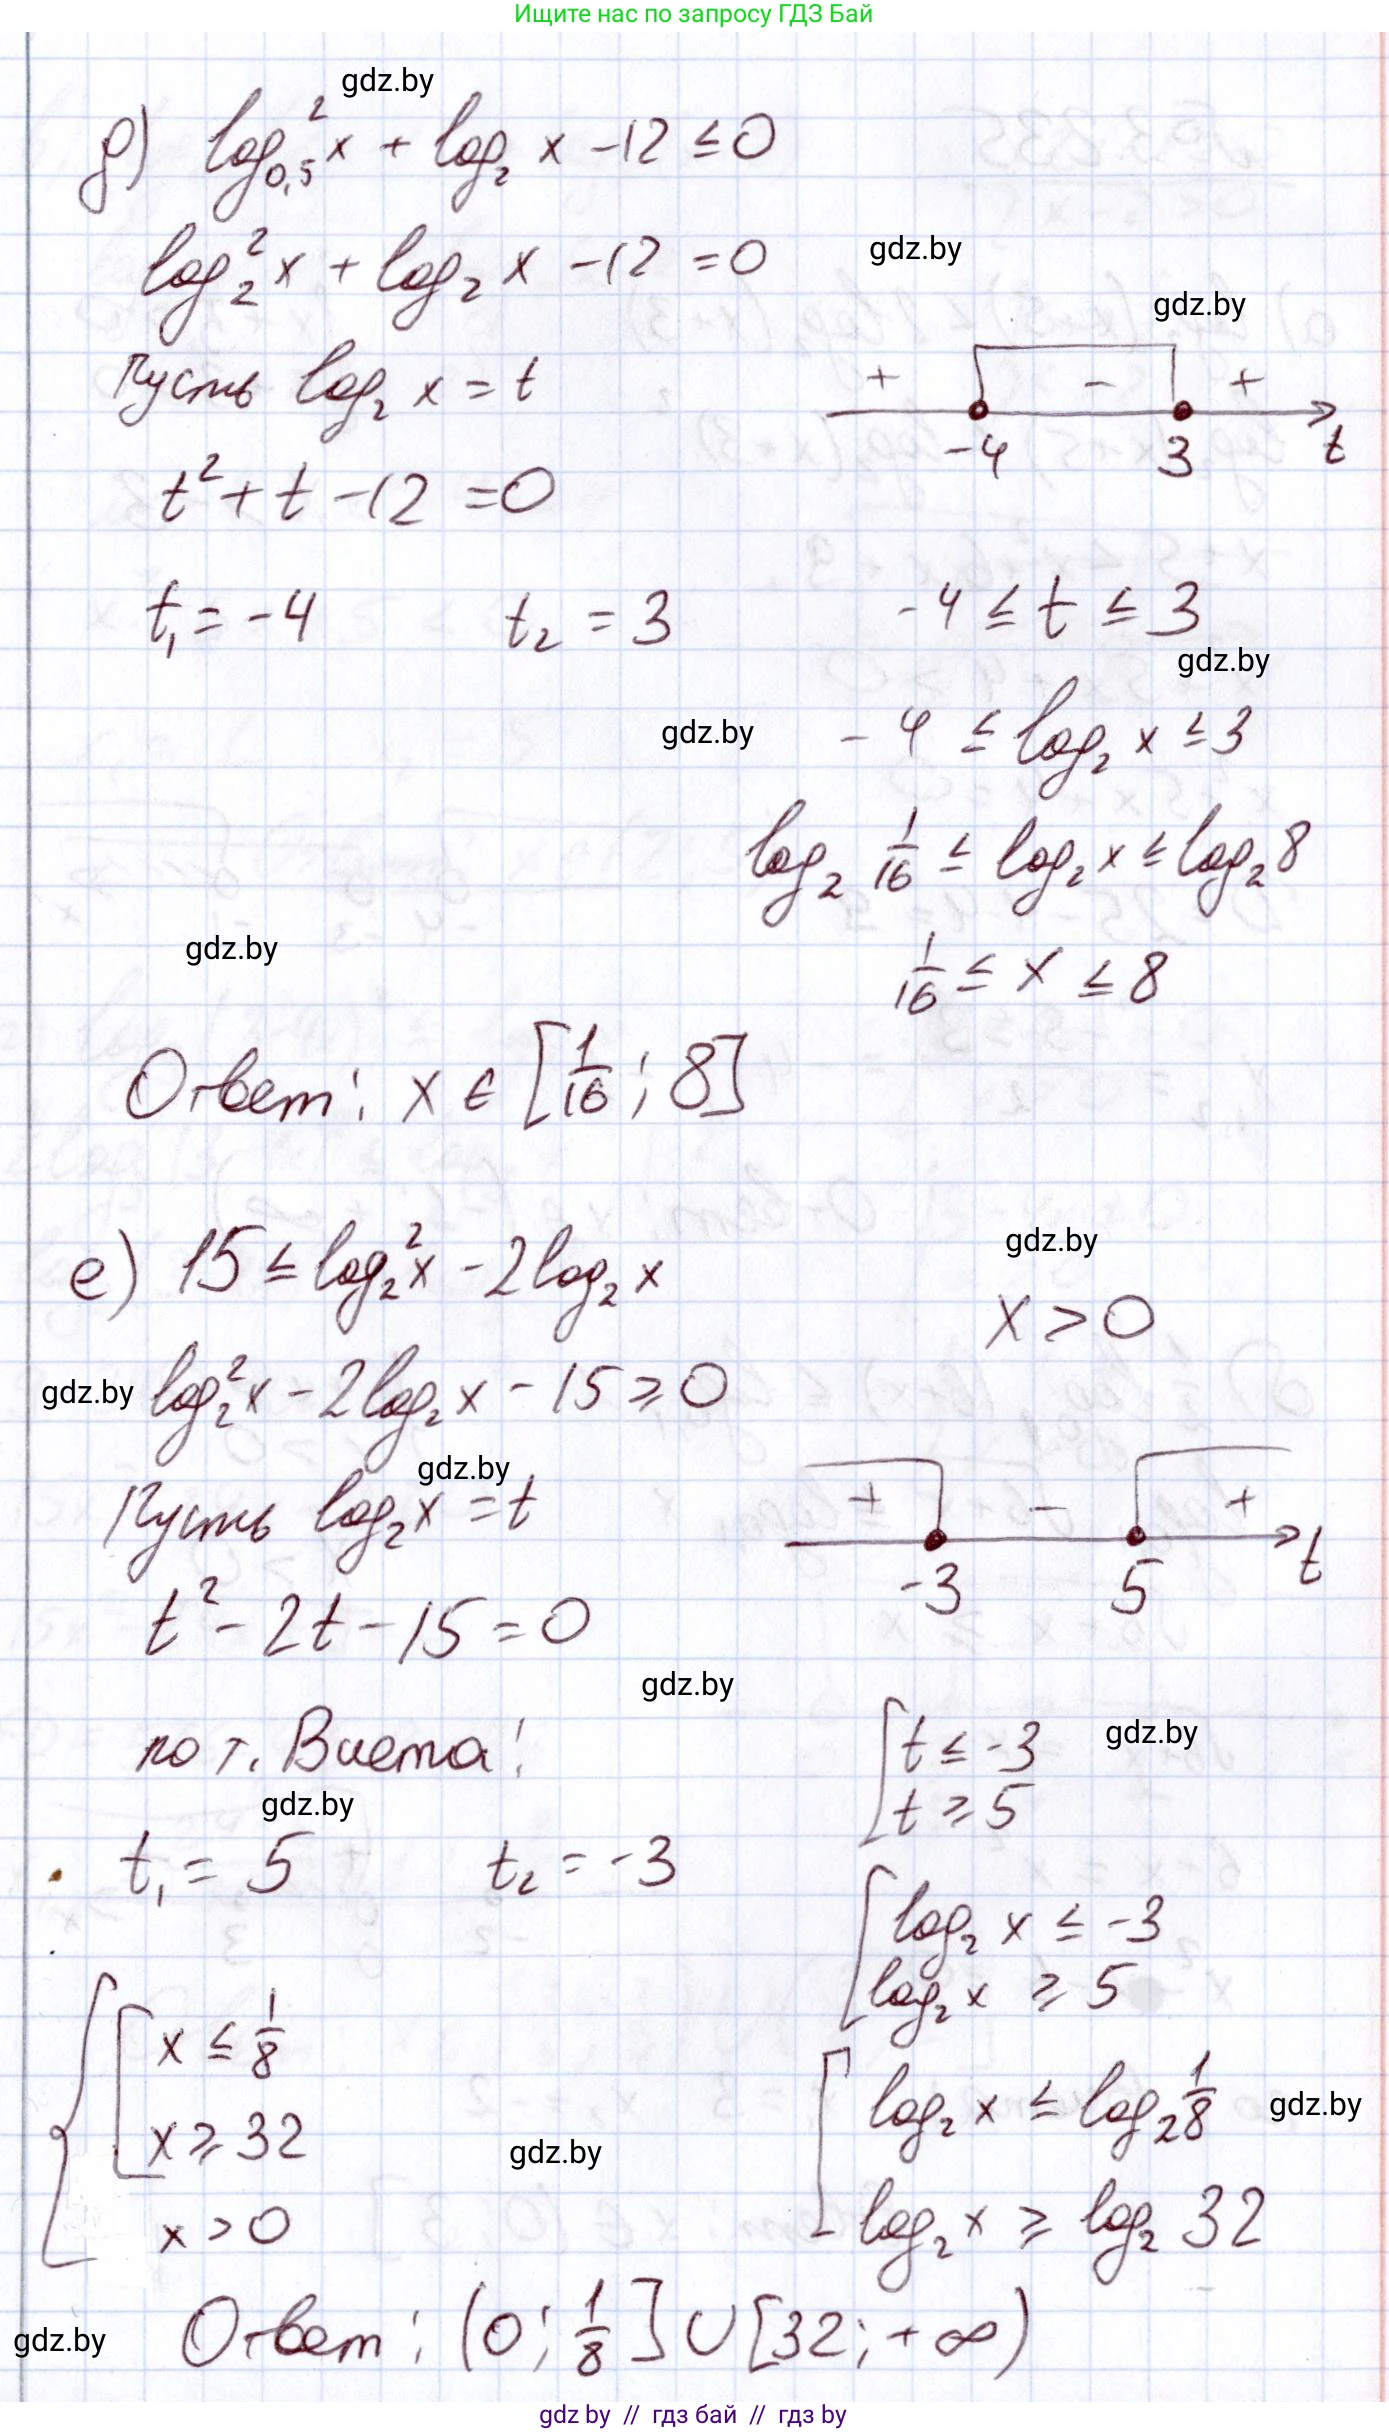 Ищите нас по запросу ГДЗ Бай
gdz.by
д) log²₀,₅ x + log₂ x - 12 ≤ 0
log₂² x + log₂ x - 12 = 0
gdz.by
gdz.by
Пусть log₂ x = t
+ - +
-4 3 t
t² + t - 12 = 0
t₁ = -4 t₂ = 3
-4 ≤ t ≤ 3
gdz.by
gdz.by
-4 ≤ log₂ x ≤ 3
log₂ 1/16 ≤ log₂ x ≤ log₂ 8
gdz.by
1/16 ≤ x ≤ 8
Ответ: x ∈ [1/16; 8]
е) 15 ≤ log₂² x - 2 log₂ x
gdz.by
x > 0
gdz.by
log₂² x - 2 log₂ x - 15 ≥ 0
gdz.by
Пусть log₂ x = t
+ - +
-3 5 t
t² - 2t - 15 = 0
gdz.by
по т. Виета:
gdz.by
[ t ≤ -3
t ≥ 5
gdz.by
t₁ = 5 t₂ = -3
[ log₂ x ≤ -3
log₂ x ≥ 5
{ [ x ≤ 1/8
x ≥ 32
x > 0
[ log₂ x ≤ log₂ 1/8
gdz.by
gdz.by
log₂ x ≥ log₂ 32
Ответ: (0; 1/8] ∪ [32; +∞)
gdz.by
gdz by // гдз бай // гдз by